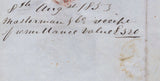 8th Augst 1853
Masterman & Co recipe
for remittance value £320